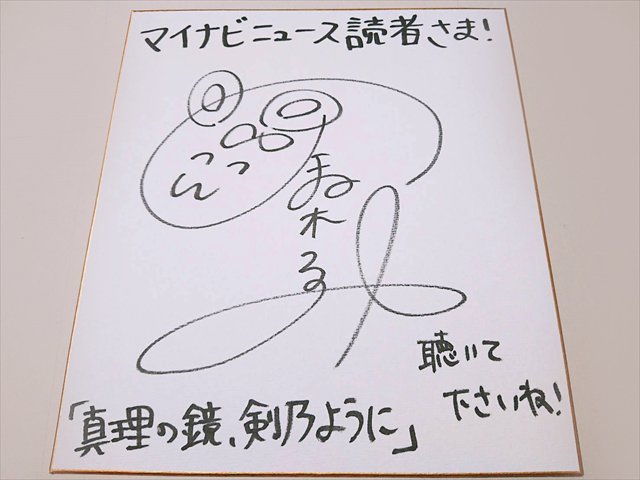 マイナビニュース読者さま!
聴いて
下さいね!
「真理の鏡、剣乃ように」